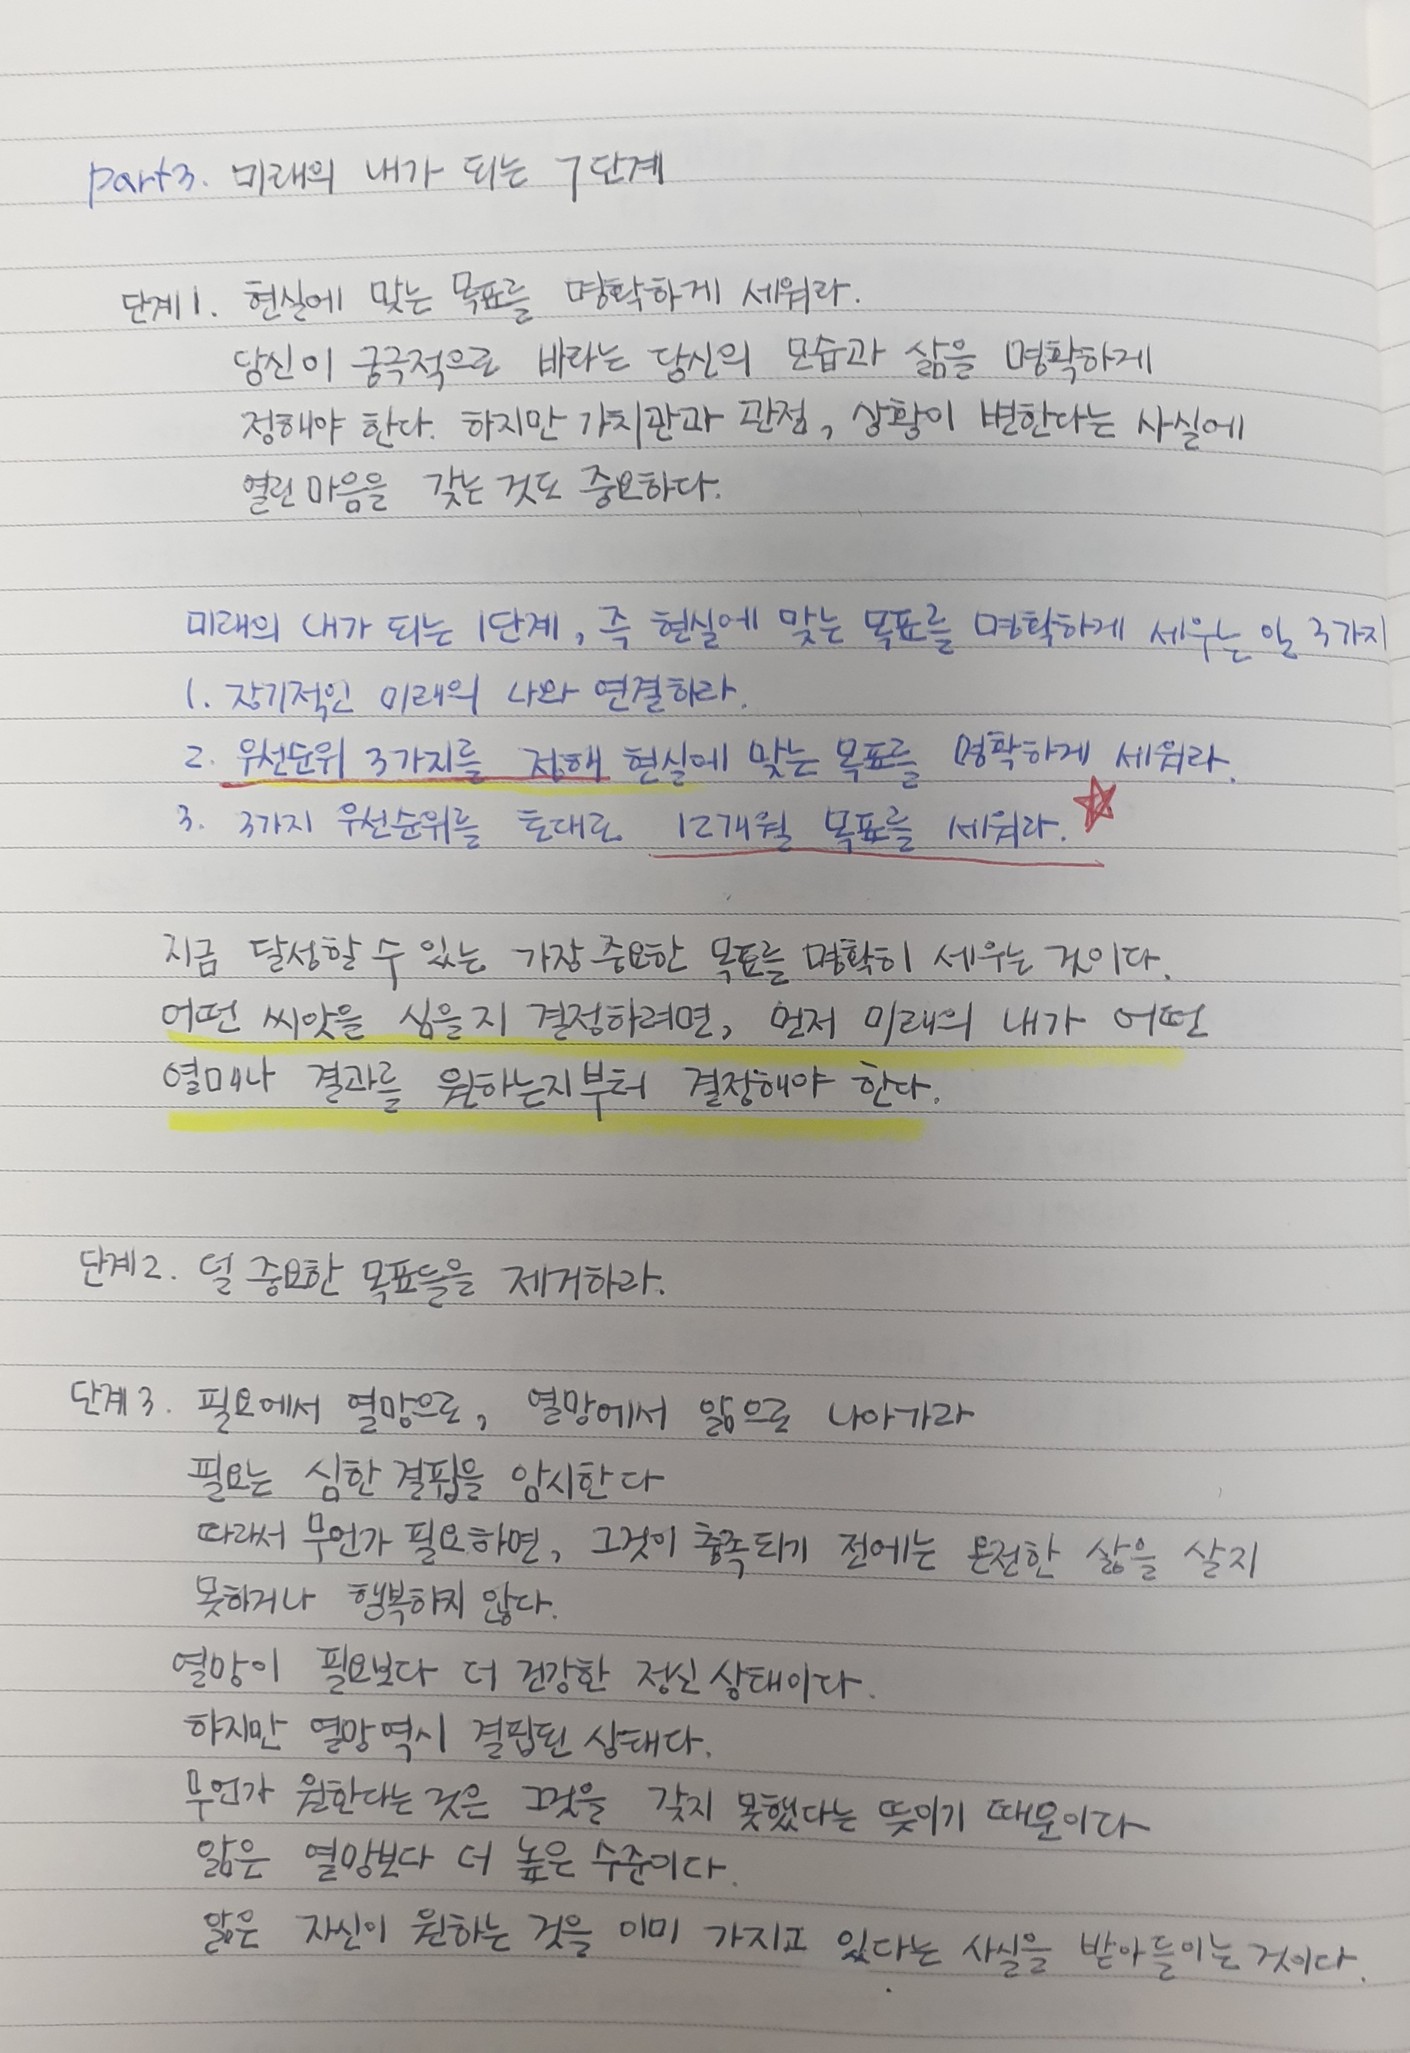 part3. 미래의 내가 되는 7단계
단계1. 현실에 맞는 목표를 명확하게 세워라.
당신이 궁극적으로 바라는 당신의 모습과 삶을 명확하게
정해야 한다. 하지만 가치관과 관점, 상황이 변한다는 사실에
열린 마음을 갖는 것도 중요하다.
미래의 내가 되는 1단계, 즉 현실에 맞는 목표를 명확하게 세우는 일 3가지
1. 장기적인 미래의 나와 연결하라.
2. 우선순위 3가지를 정해 현실에 맞는 목표를 명확하게 세워라.
3. 3가지 우선순위를 토대로 12개월 목표를 세워라.
지금 달성할 수 있는 가장 중요한 목표를 명확히 세우는 것이다.
어떤 씨앗을 심을지 결정하려면, 먼저 미래의 내가 어떤
열매나 결과를 원하는지부터 결정해야 한다.
단계2. 덜 중요한 목표들을 제거하라.
단계3. 필요에서 열망으로, 열망에서 앎으로 나아가라
필요는 심한 결핍을 암시한다
따라서 무언가 필요하면, 그것이 충족되기 전에는 온전한 삶을 살지
못하거나 행복하지 않다.
열망이 필요보다 더 건강한 정신 상태이다.
하지만 열망 역시 결핍된 상태다.
무언가 원한다는 것은 그것을 갖지 못했다는 뜻이기 때문이다
앎은 열망보다 더 높은 수준이다.
앎은 자신이 원하는 것을 이미 가지고 있다는 사실을 받아들이는 것이다.